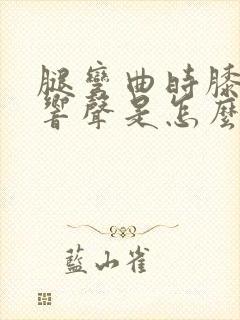 腿彎曲時膝
響聲是怎麼
藍山雀